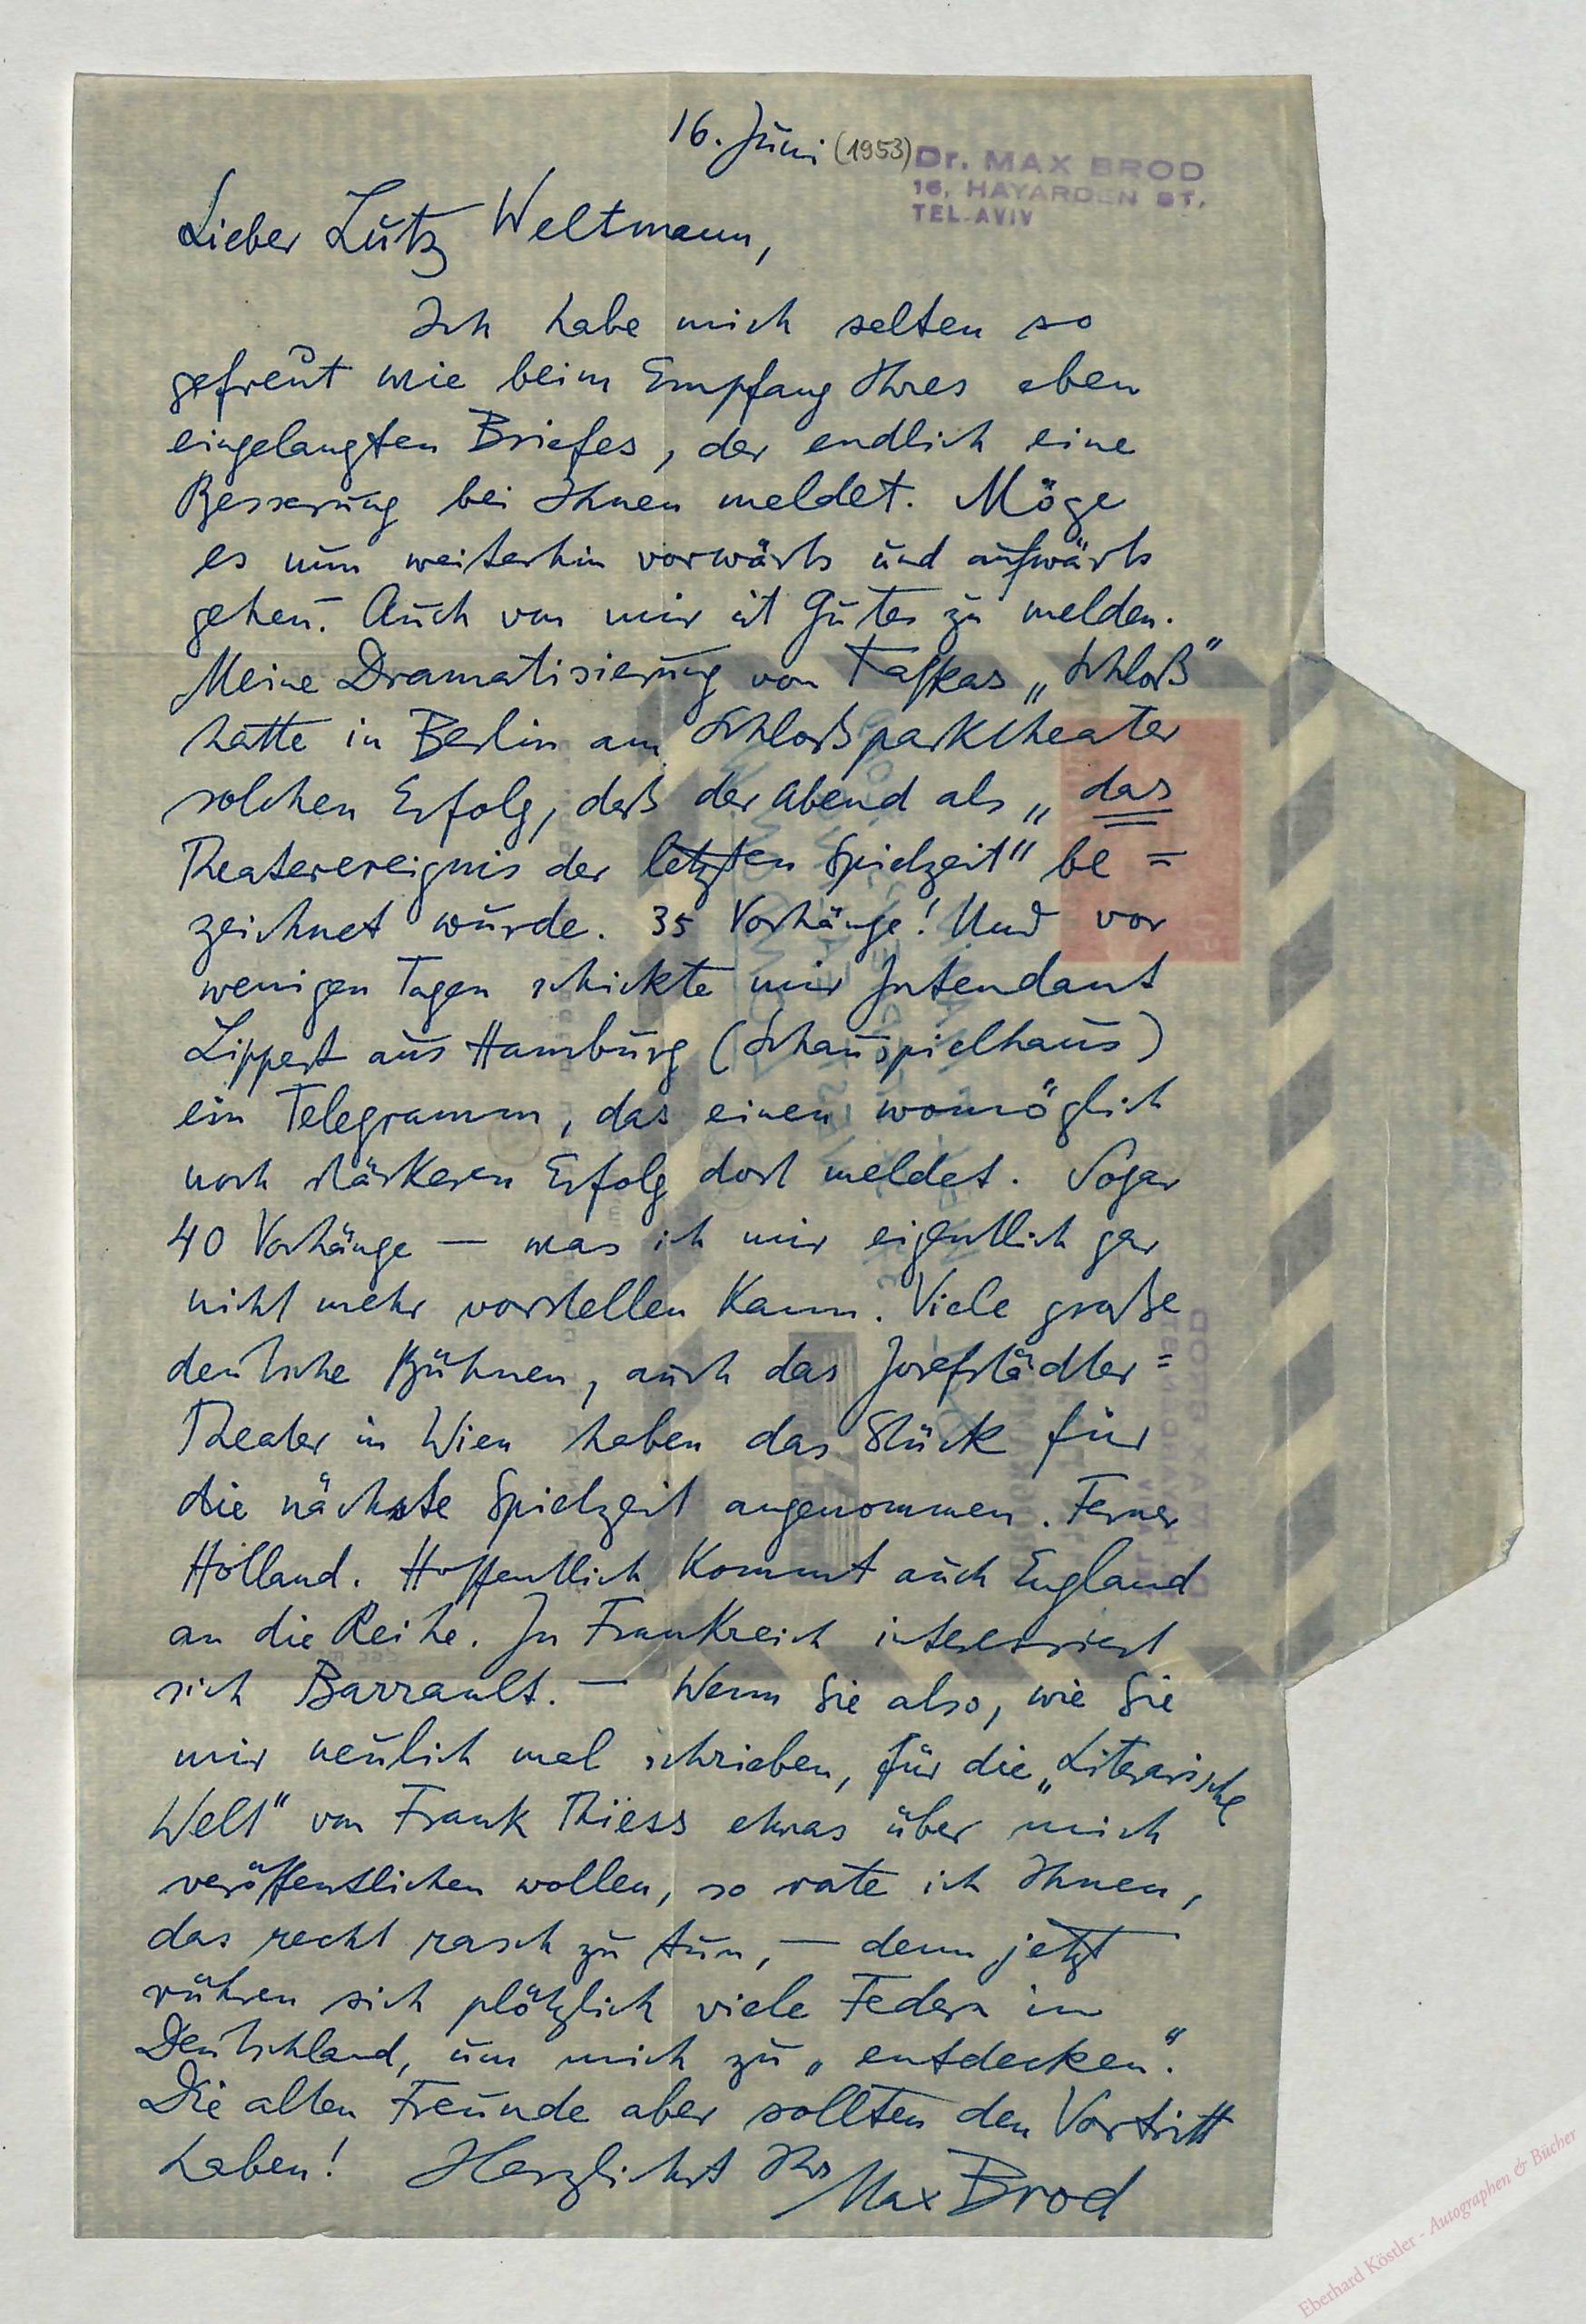 16. Juni (1953)
Dr. MAX BROD
16, HAYARDEN ST.
TEL-AVIV
Lieber Lutz Weltmann,
Ich habe mich selten so
gefreut wie beim Empfang Ihres eben
eingelangten Briefes, der endlich eine
Besserung bei Ihnen meldet. Möge
es nun weiterhin vorwärts und aufwärts
gehen. Auch von mir ist Gutes zu melden.
Meine Dramatisierung von Kafkas „Schloß"
hatte in Berlin am Schloßparktheater
solchen Erfolg, daß der Abend als „das
Theaterereignis der letzten Spielzeit" be=
zeichnet wurde. 35 Vorhänge! Und vor
wenigen Tagen schickte mir Intendant
Lippert aus Hamburg (Schauspielhaus)
ein Telegramm, das einen womöglich
noch stärkeren Erfolg dort meldet. Sogar
40 Vorhänge — was ich mir eigentlich gar
nicht mehr vorstellen kann. Viele große
deutsche Bühnen, auch das Josefstädter=
Theater in Wien haben das Stück für
die nächste Spielzeit angenommen. Ferner
Holland. Hoffentlich kommt auch England
an die Reihe. In Frankreich interessiert
sich Barrault. — Wenn Sie also, wie Sie
mir neulich mal schrieben, für die „Literarische
Welt" von Frank Thiess etwas über mich
veröffentlichen wollen, so rate ich Ihnen,
das recht rasch zu tun, — denn jetzt
rühren sich plötzlich viele Federn in
Deutschland, um mich zu „entdecken".
Die alten Freunde aber sollten den Vortritt
haben! Herzlichst Ihr Max Brod
Eberhard Köstler - Autographen & Bücher